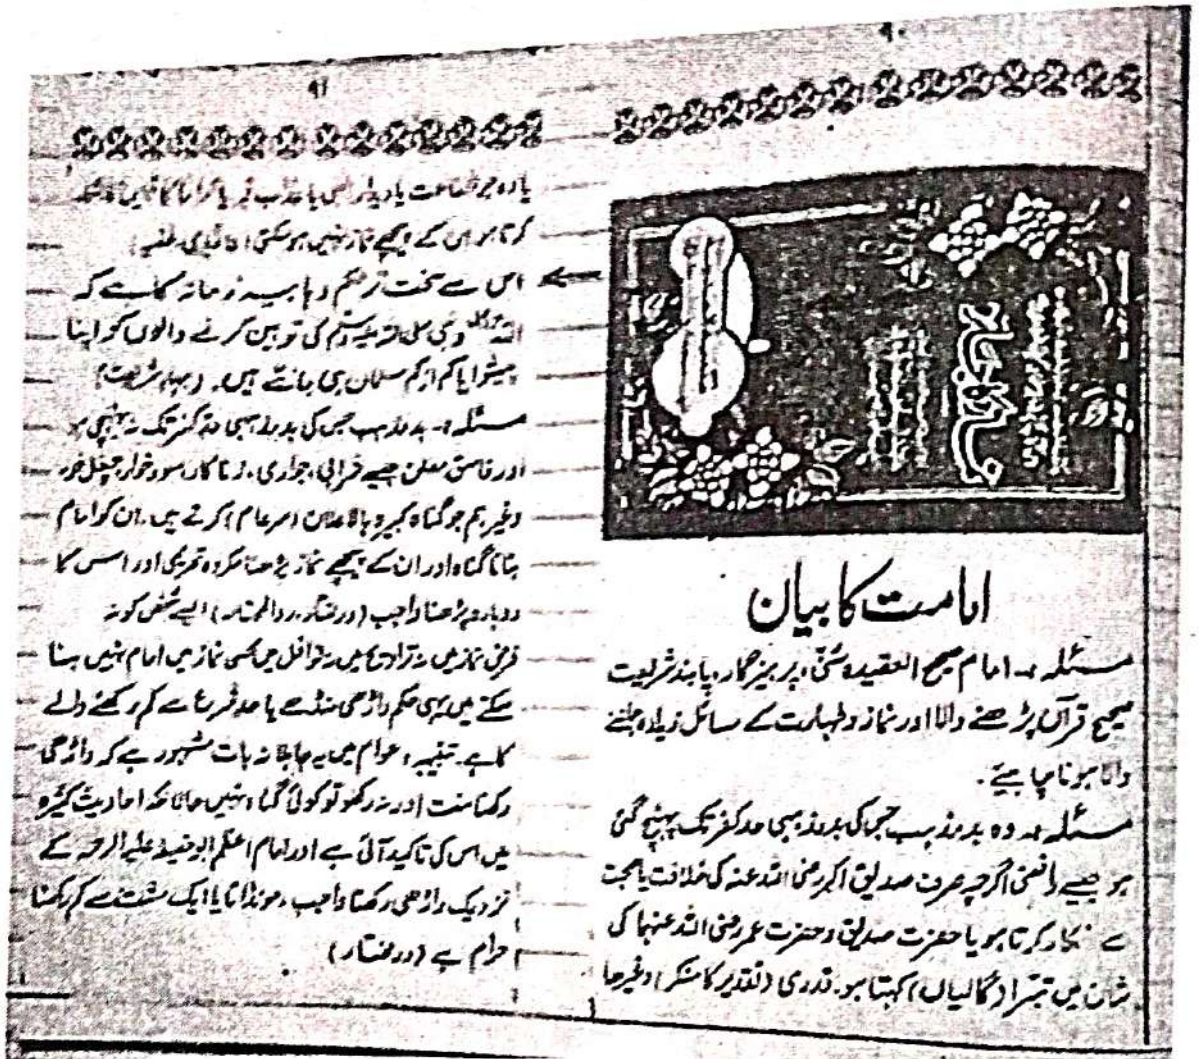 امامت کا بیان
مسئلہ :۔ امام صحیح العقیدہ سنی، پرہیزگار، پابند شریعت
صحیح قرآن پڑھنے والا اور نماز و طہارت کے مسائل زیادہ جاننے
والا ہونا چاہیئے۔
مسئلہ :۔ وہ بدمذہب جس کی بدمذہبی حد کفر تک پہنچ گئی
ہو جیسے رافضی اگرچہ صرف صدیق اکبر رضی اللہ عنہ کی خلافت یا صحبت
سے انکار کرتا ہو یا حضرت صدیق و حضرت عمر رضی اللہ عنہما کی
شان میں تبرا (گالیاں) کہتا ہو۔ قدری (تقدیر کا منکر) وغیرھا
۹۱
یا وہ جو شفاعت یا دیدار الٰہی یا عذاب قبر یا کراماً کاتبین کا
کرتا ہو اس کے پیچھے نماز نہیں ہوسکتی (
اس سے سخت تر حکم وہابیہ زمانہ کا ہے کہ
اللہ و نبی صلی اللہ علیہ وسلم کی توہین کرنے والوں کو اپنا
پیشوا یا کم از کم مسلمان ہی جانتے ہیں۔ (بہار شریعت)
مسئلہ :۔ بدمذہب جس کی بدمذہبی حد کفر تک نہ پہنچی ہو
اور فاسق معلن جیسے شرابی، جواری، زنا کار، سود خوار، چغل خور
وغیرہم جو گناہ کبیرہ بالاعلان (سرعام) کرتے ہیں۔ ان کو امام
بنانا گناہ اور ان کے پیچھے نماز پڑھنا مکروہ تحریمی اور اس کا
دوبارہ پڑھنا واجب (درمختار، ردالمحتار) ایسے شخص کو نہ
فرض نماز میں نہ تراویح میں نہ نوافل میں کسی نماز میں امام نہیں بنا
سکتے ہیں یہی حکم داڑھی منڈے یا حد شرع سے کم رکھنے والے
کا ہے۔ تنبیہ، عوام میں یہ جاہلانہ بات مشہور ہے کہ داڑھی
رکھنا سنت اور نہ رکھو تو کوئی گناہ نہیں حالانکہ احادیث کثیرہ
میں اس کی تاکید آئی ہے اور امام اعظم ابوحنیفہ علیہ الرحمہ کے
نزدیک داڑھی رکھنا واجب، مونڈانا یا ایک مشت سے کم رکھنا
حرام ہے (درمختار)